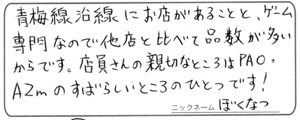 青梅線沿線にお店があることと、ゲーム
専門なので他店と比べて品数が多い
からです。店員さんの親切なところはPAO。
A2mのすばらしいところのひとつです!
ニックネーム ぼくなつ